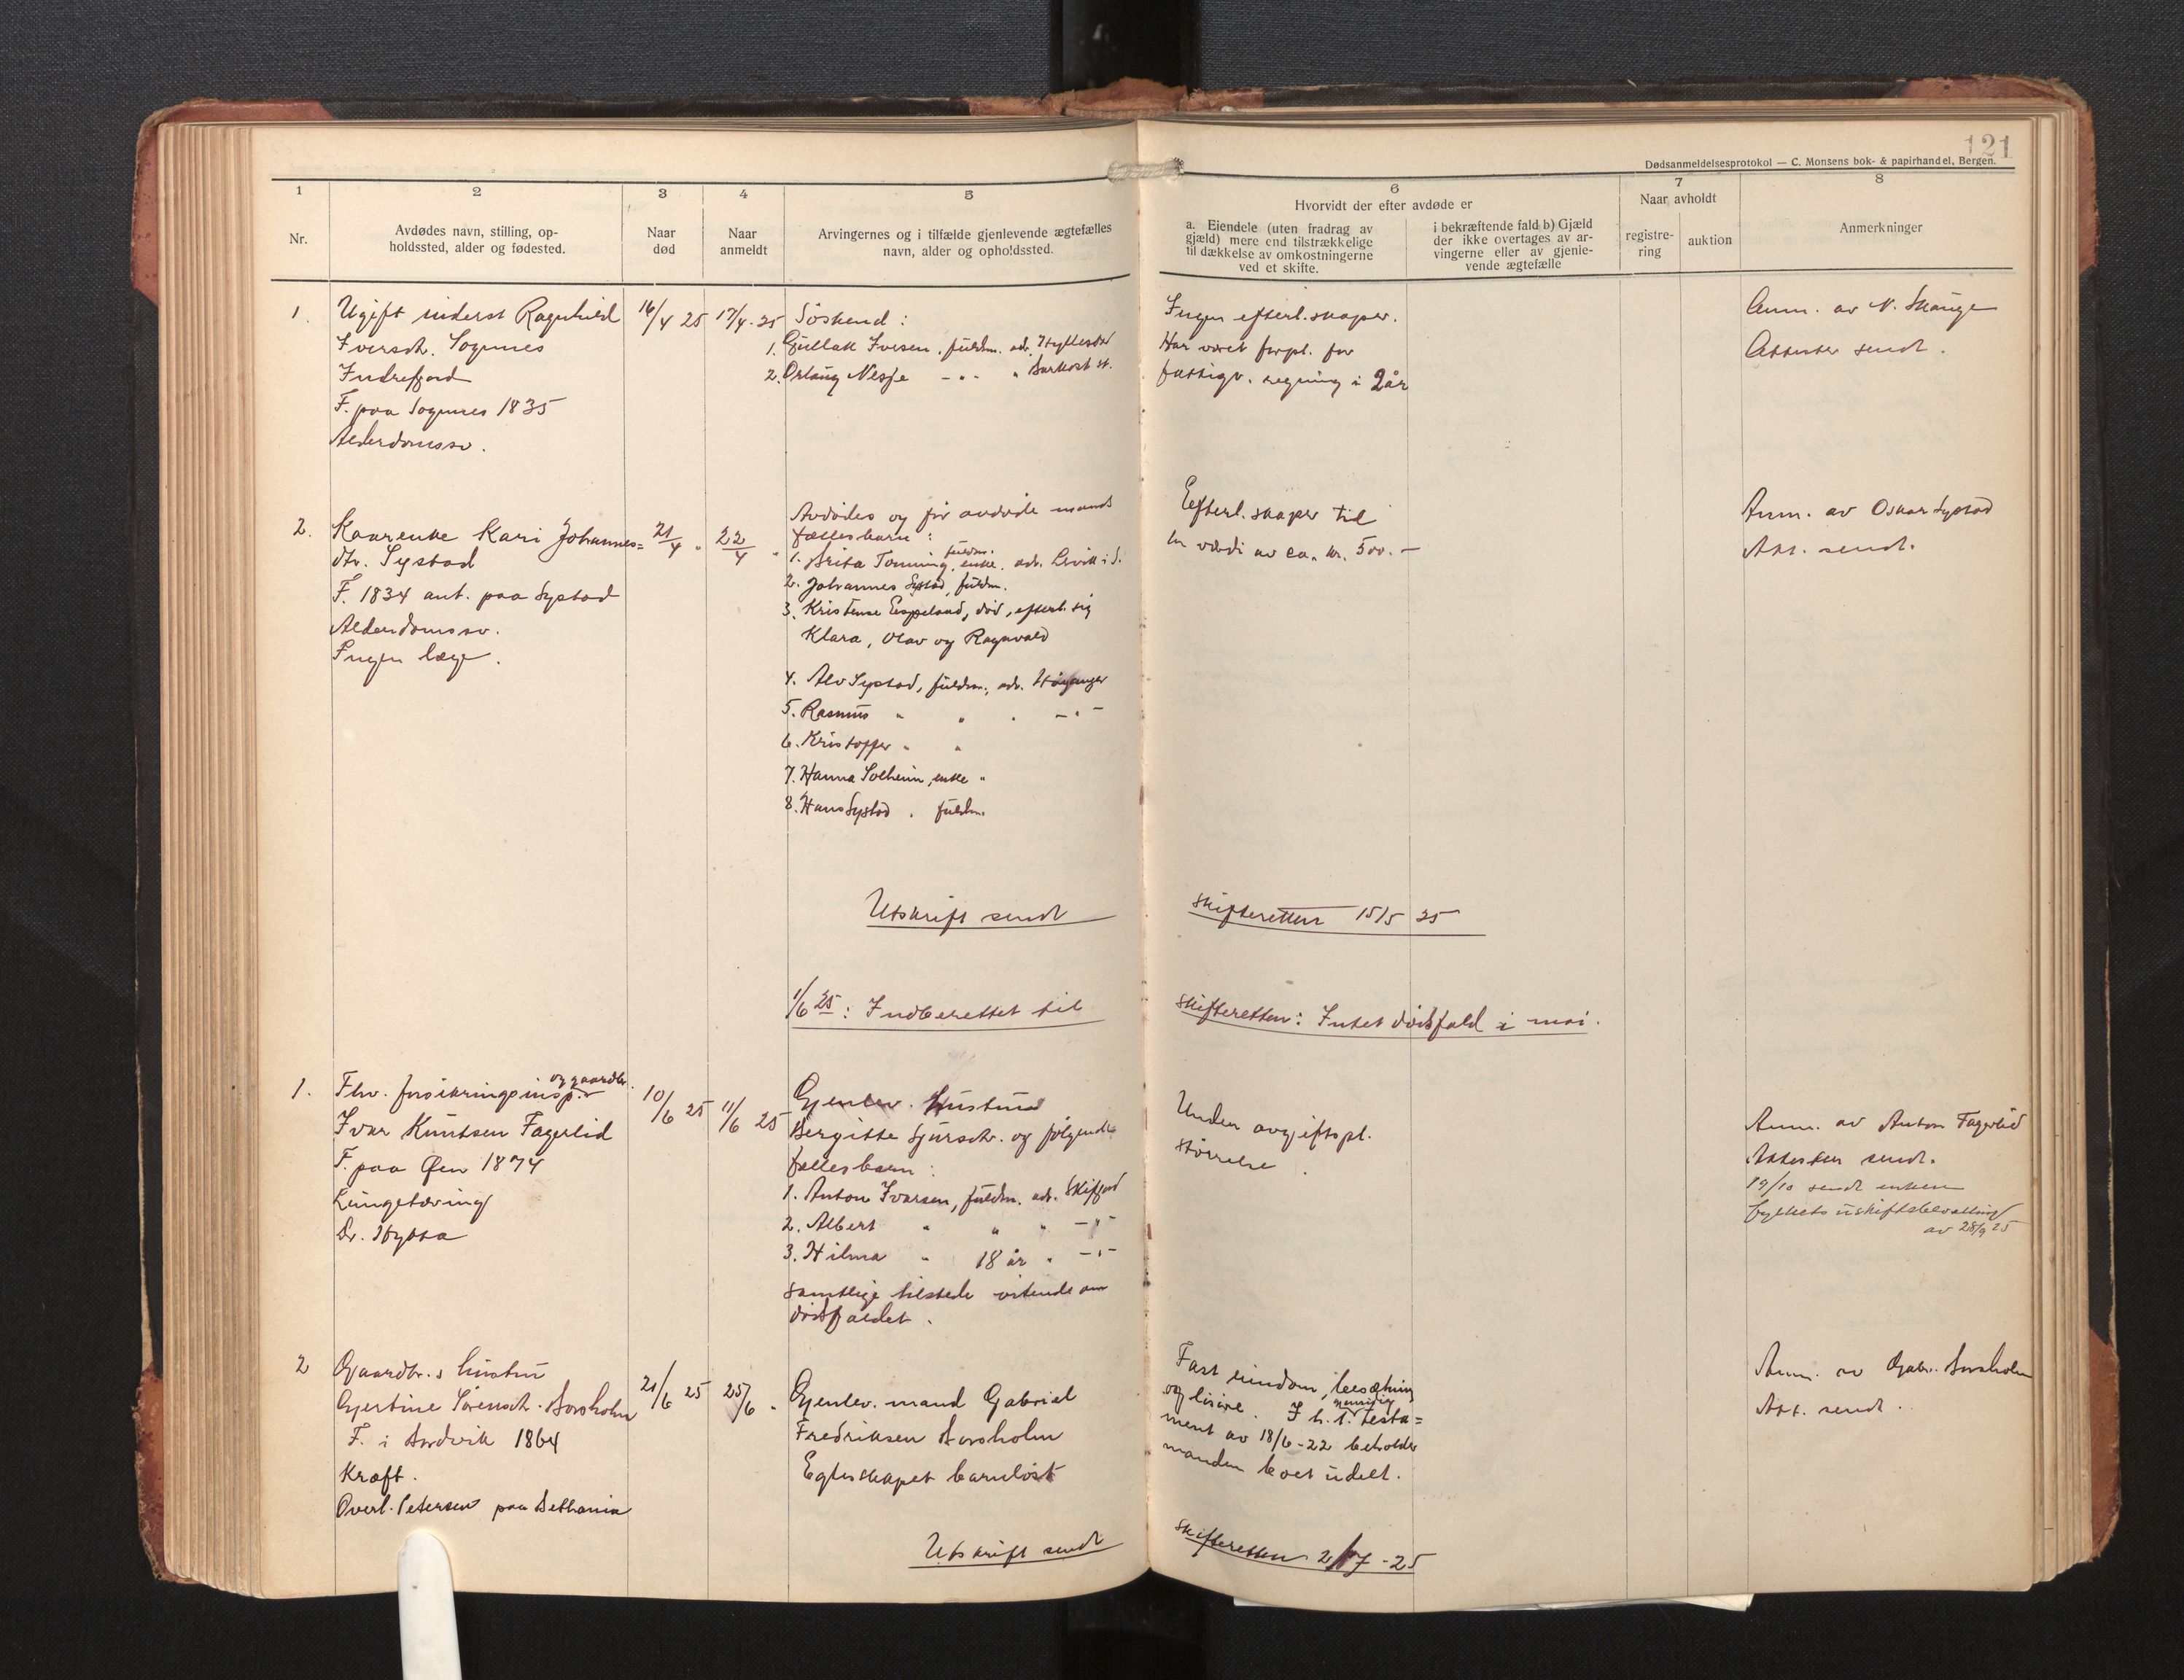 121
Dødsanmeldelsesprotokol — C. Monsens bok- & papirhandel, Bergen.
1
2
3
4
5
6
7
8
Nr.
Avdødes navn, stilling, op-
holdssted, alder og fødested.
Naar
død
Naar
anmeldt
Arvingernes og i tilfælde gjenlevende ægtefælles
navn, alder og opholdssted.
Hvorvidt der efter avdøde er
a. Eiendele (uten fradrag av
gjæld) mere end tilstrækkelige
til dækkelse av omkostningerne
ved et skifte.
i bekræftende fald b) Gjæld
der ikke overtages av ar-
vingerne eller av gjenle-
vende ægtefælle
Naar avholdt
registre-
ring
auktion
Anmerkninger
1. Ugift inderst Ragnhild
Iversdt. Sognnes
Indrefjord
F. paa Sognnes 1835
Alderdomssv.
16/4 25
17/4 - 25
Søskend :
1. Gullak Iversen, fuldm. adr. Hyllestad
2. Orlaug Nesje - " - "
Ingen efterl.skaper.
Har været forpl. for
fattigv. regning i 2 år
Anm. av N. Skauge
Attester sendt.
2. Kaarenke Kari Johannes=
dtr. Systad
F. 1834 ant. paa Systad
Alderdomssv.
Ingen læge.
21/4 "
22/4 "
Avdødes og før avdøde mands
fællesbarn :
1. Brita Tonning, enke, fuldm. adr. Levik i S.
2. Johannes Systad, fuldm.
3. Kristense Espeland, død, efterl. sig
Klara, Olav og Ragnvald
4. Alv Systad, fuldm., adr. Høyanger
5. Rasmus " " . - " -
6. Kristoffer " "
7. Hanna Solheim, enke "
8. Hans Systad, fuldm.
Efterl.skaper til
en værdi av ca. kr. 500.-
Anm. av Oskar Systad
Att. sendt.
Utskrift sendt skifteretten 15/5 25
1/6 25 : Indberettet til skifteretten: Intet dødsfald i mai.
1. Fhv. forsikringsinsp. og gaardbr.
Ivar Knutsen Fagerlid
F. paa Øen 1874
Lungetæring
Dr. Hybta
10/6 25
11/6 25
Gjenlev. hustru
Bergitte Sjursdt. og følgende
fællesbarn :
1. Anton Ivarsen, fuldm. adr. Skifjord
2. Albert " " " - " -
3. Hilma " 18 år " - " -
samtlige tilstede vitende om
dødsfaldet.
Under avgiftspl.
størrelse.
Anm. av Anton Fagerlid
Attester sendt.
19/10 sendt enken
fylkets uskiftebevilling
av 28/9 25
2 Gaardbr.s hustru
Gjertine Sørensdt. Borsholm
F. i Bordvik 1864
Kræft.
Overl. Petersen paa Bethania
21/6 25
25/6 "
Gjenlev. mand Gabriel
Fredriksen Borsholm
Egteskapet barnløst
Fast eiendom, besætning
og løsøre. I h. t. gjensidig testa=
ment av 18/6-22 beholder
manden boet udelt.
Anm. av Gabr. Borsholm
Att. sendt.
Utskrift sendt skifteretten 2/7 - 25